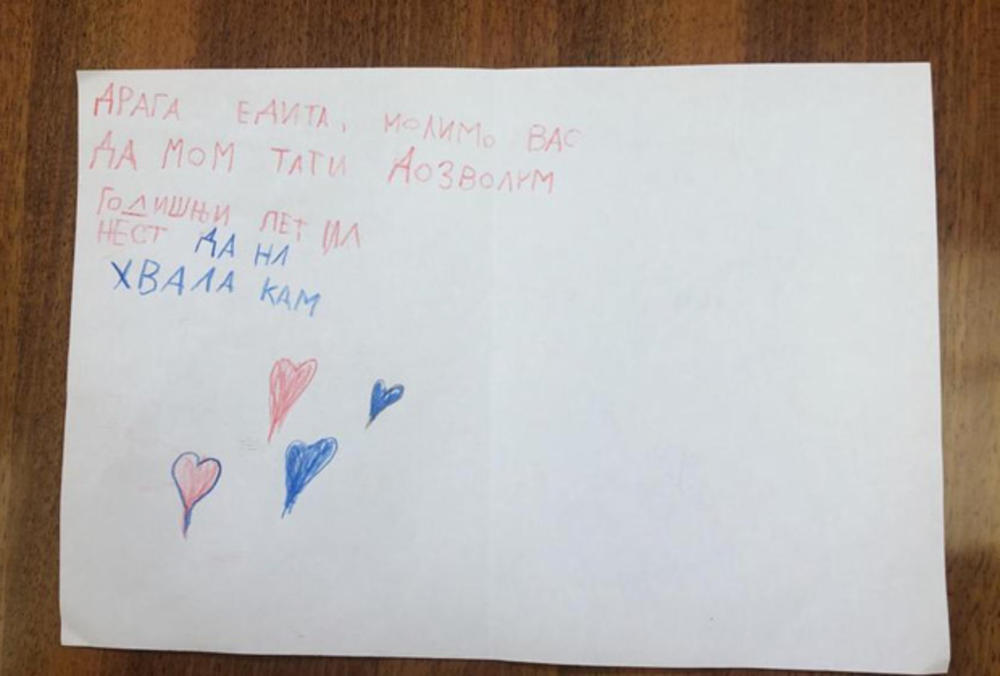 ДРАГА ЕДИТА, МОЛИМО ВАС
ДА МОМ ТАТИ ДОЗВОЛИМ
ГОДИШЊИ ЛЕТ
НЕСТ ДА НА
ХВАЛА КАМ